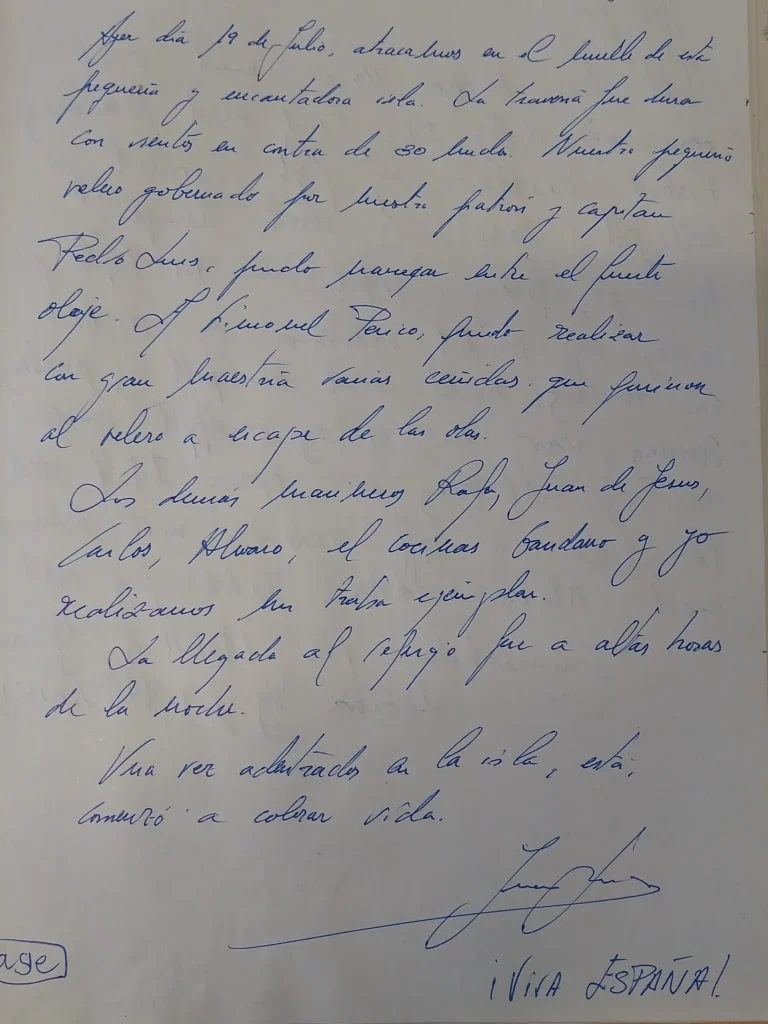 Ayer día 19 de Julio, atracamos en el muelle de esta
pequeña y encantadora isla. La travesía fue dura
con vientos en contra de 30 nudos. Nuestro pequeño
velero gobernado por nuestro patrón y capitan
Pedro Luis, pudo navegar entre el fuerte
oleaje. Al timonel Perico, pudo realizar
con gran maestría varias ceñidas que pusieron
al velero a escape de las olas.
Los demás marineros Rafa, Juan de Jesus,
Carlos, Alvaro, el cocinas y yo
realizamos un ejemplar.
La llegada al refugio fue a altas horas
de la noche.
Una vez adentrados en la isla, está,
comenzó a cobrar vida.
¡VIVA ESPAÑA!